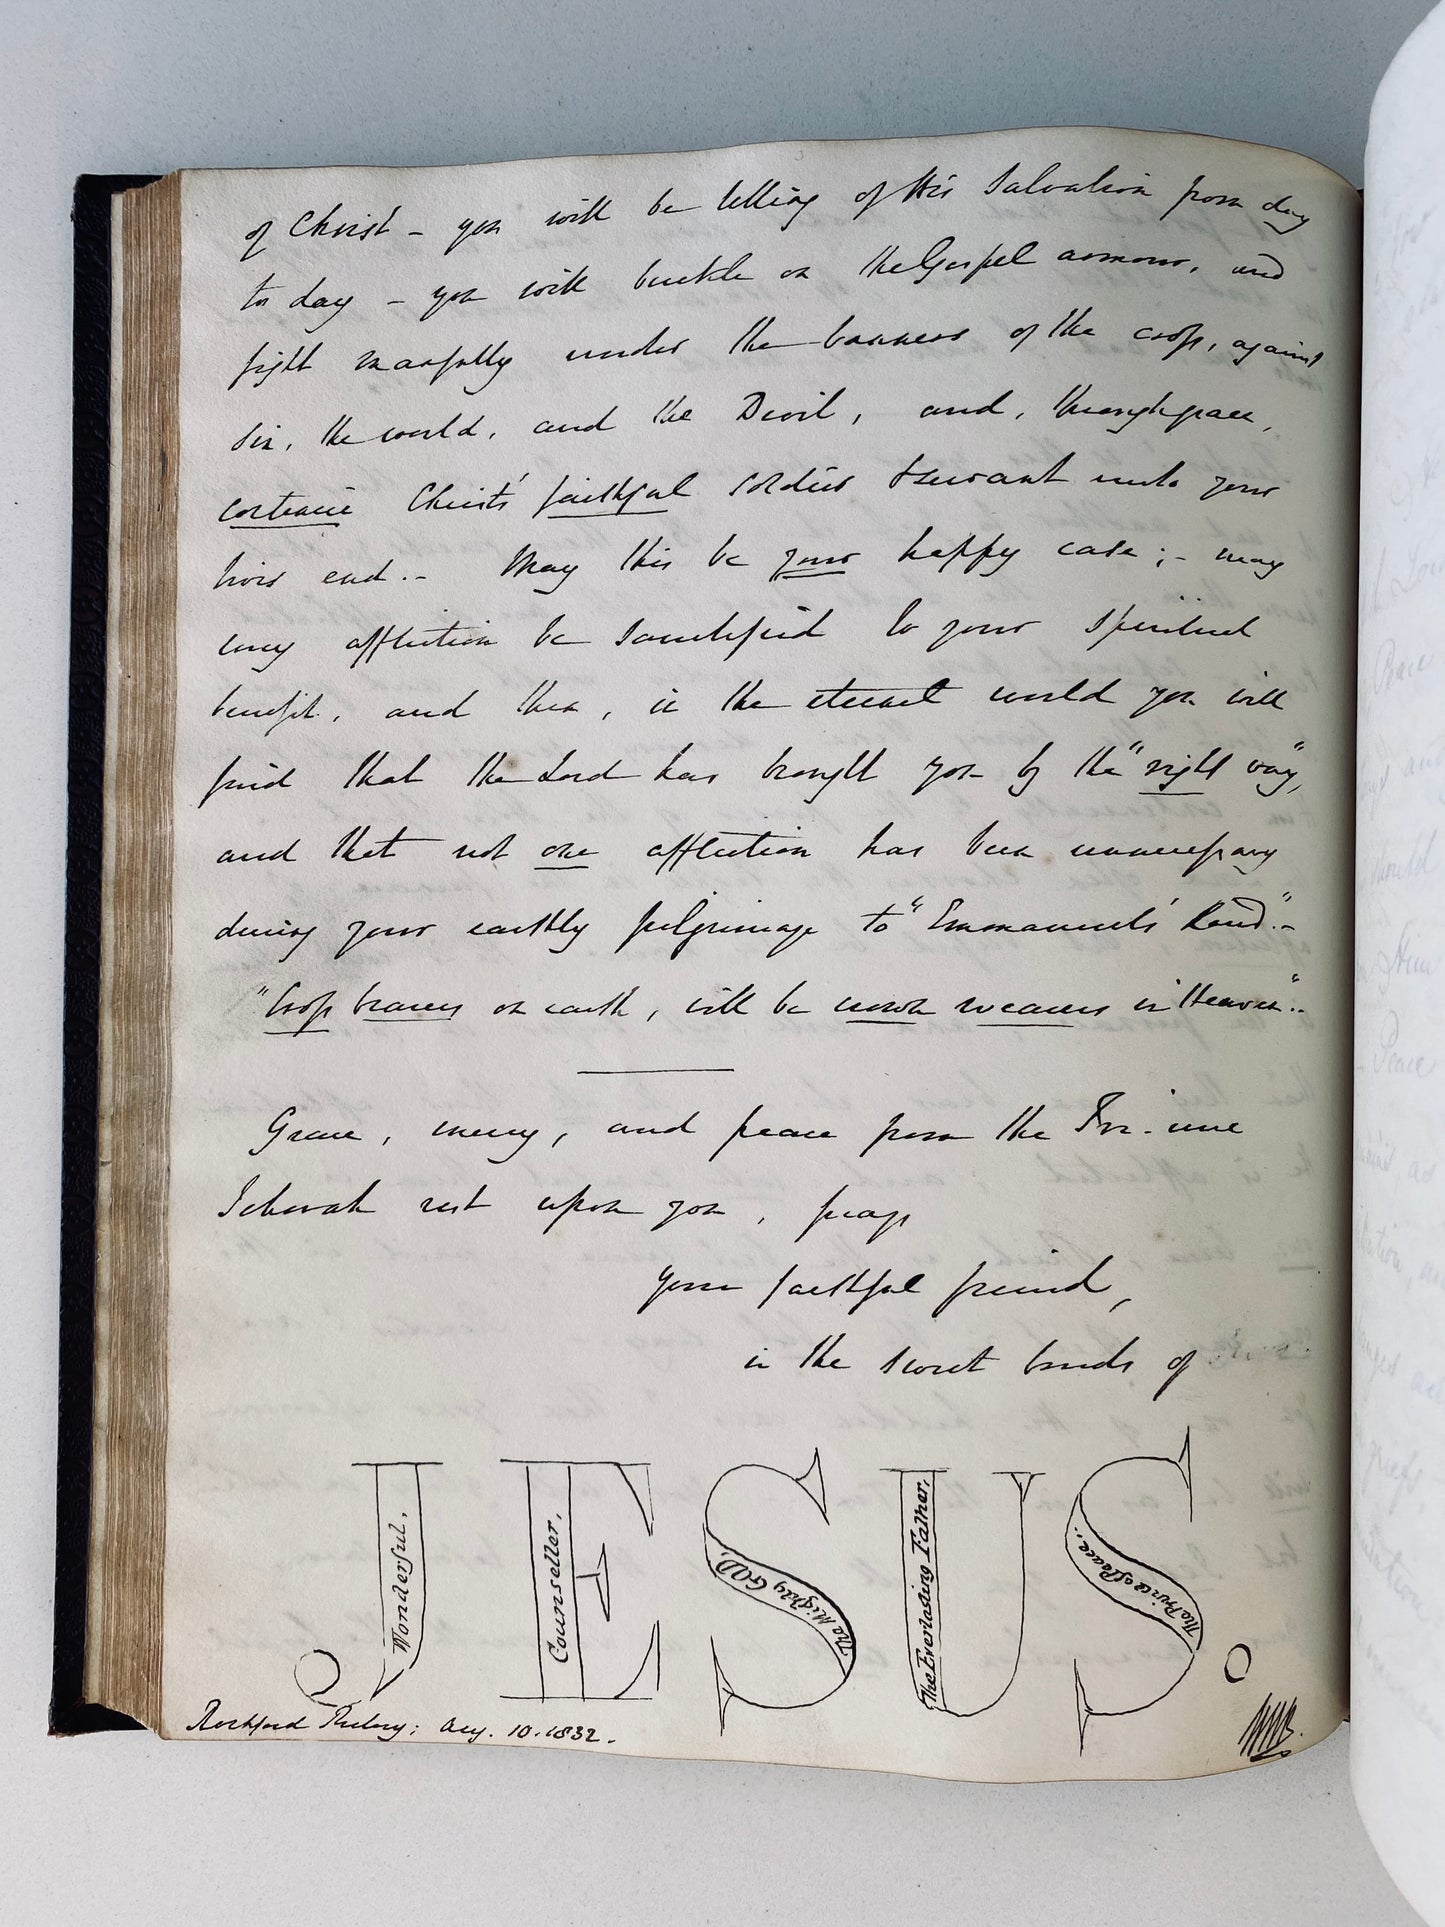 of Christ – you will be telling of His Salvation from day
to day – you will buckle on the Gospel armour, and
fight manfully under the banners of the cross, against
sin, the world, and the Devil, and, through grace,
continue Christ's faithful soldier & servant unto your
lives end. – May this be your happy case; – may
every affliction be sanctified to your spiritual
benefit, and then, in the eternal world you will
find that the Lord has brought you by the "right way",
and that not one affliction has been unnecessary
during your earthly pilgrimage to "Emmanuel's Land". –
"Cross bearers on earth, will be crown wearers in Heaven". .
Grace, mercy, and peace from the Tri-une
Jehovah rest upon you, prays
your faithful friend,
in the sweet bonds of
JESUS.
Wonderful,
Counseller,
The Mighty GOD,
The Everlasting Father,
The Prince of Peace..
Rectory; Aug. 10. 1832.